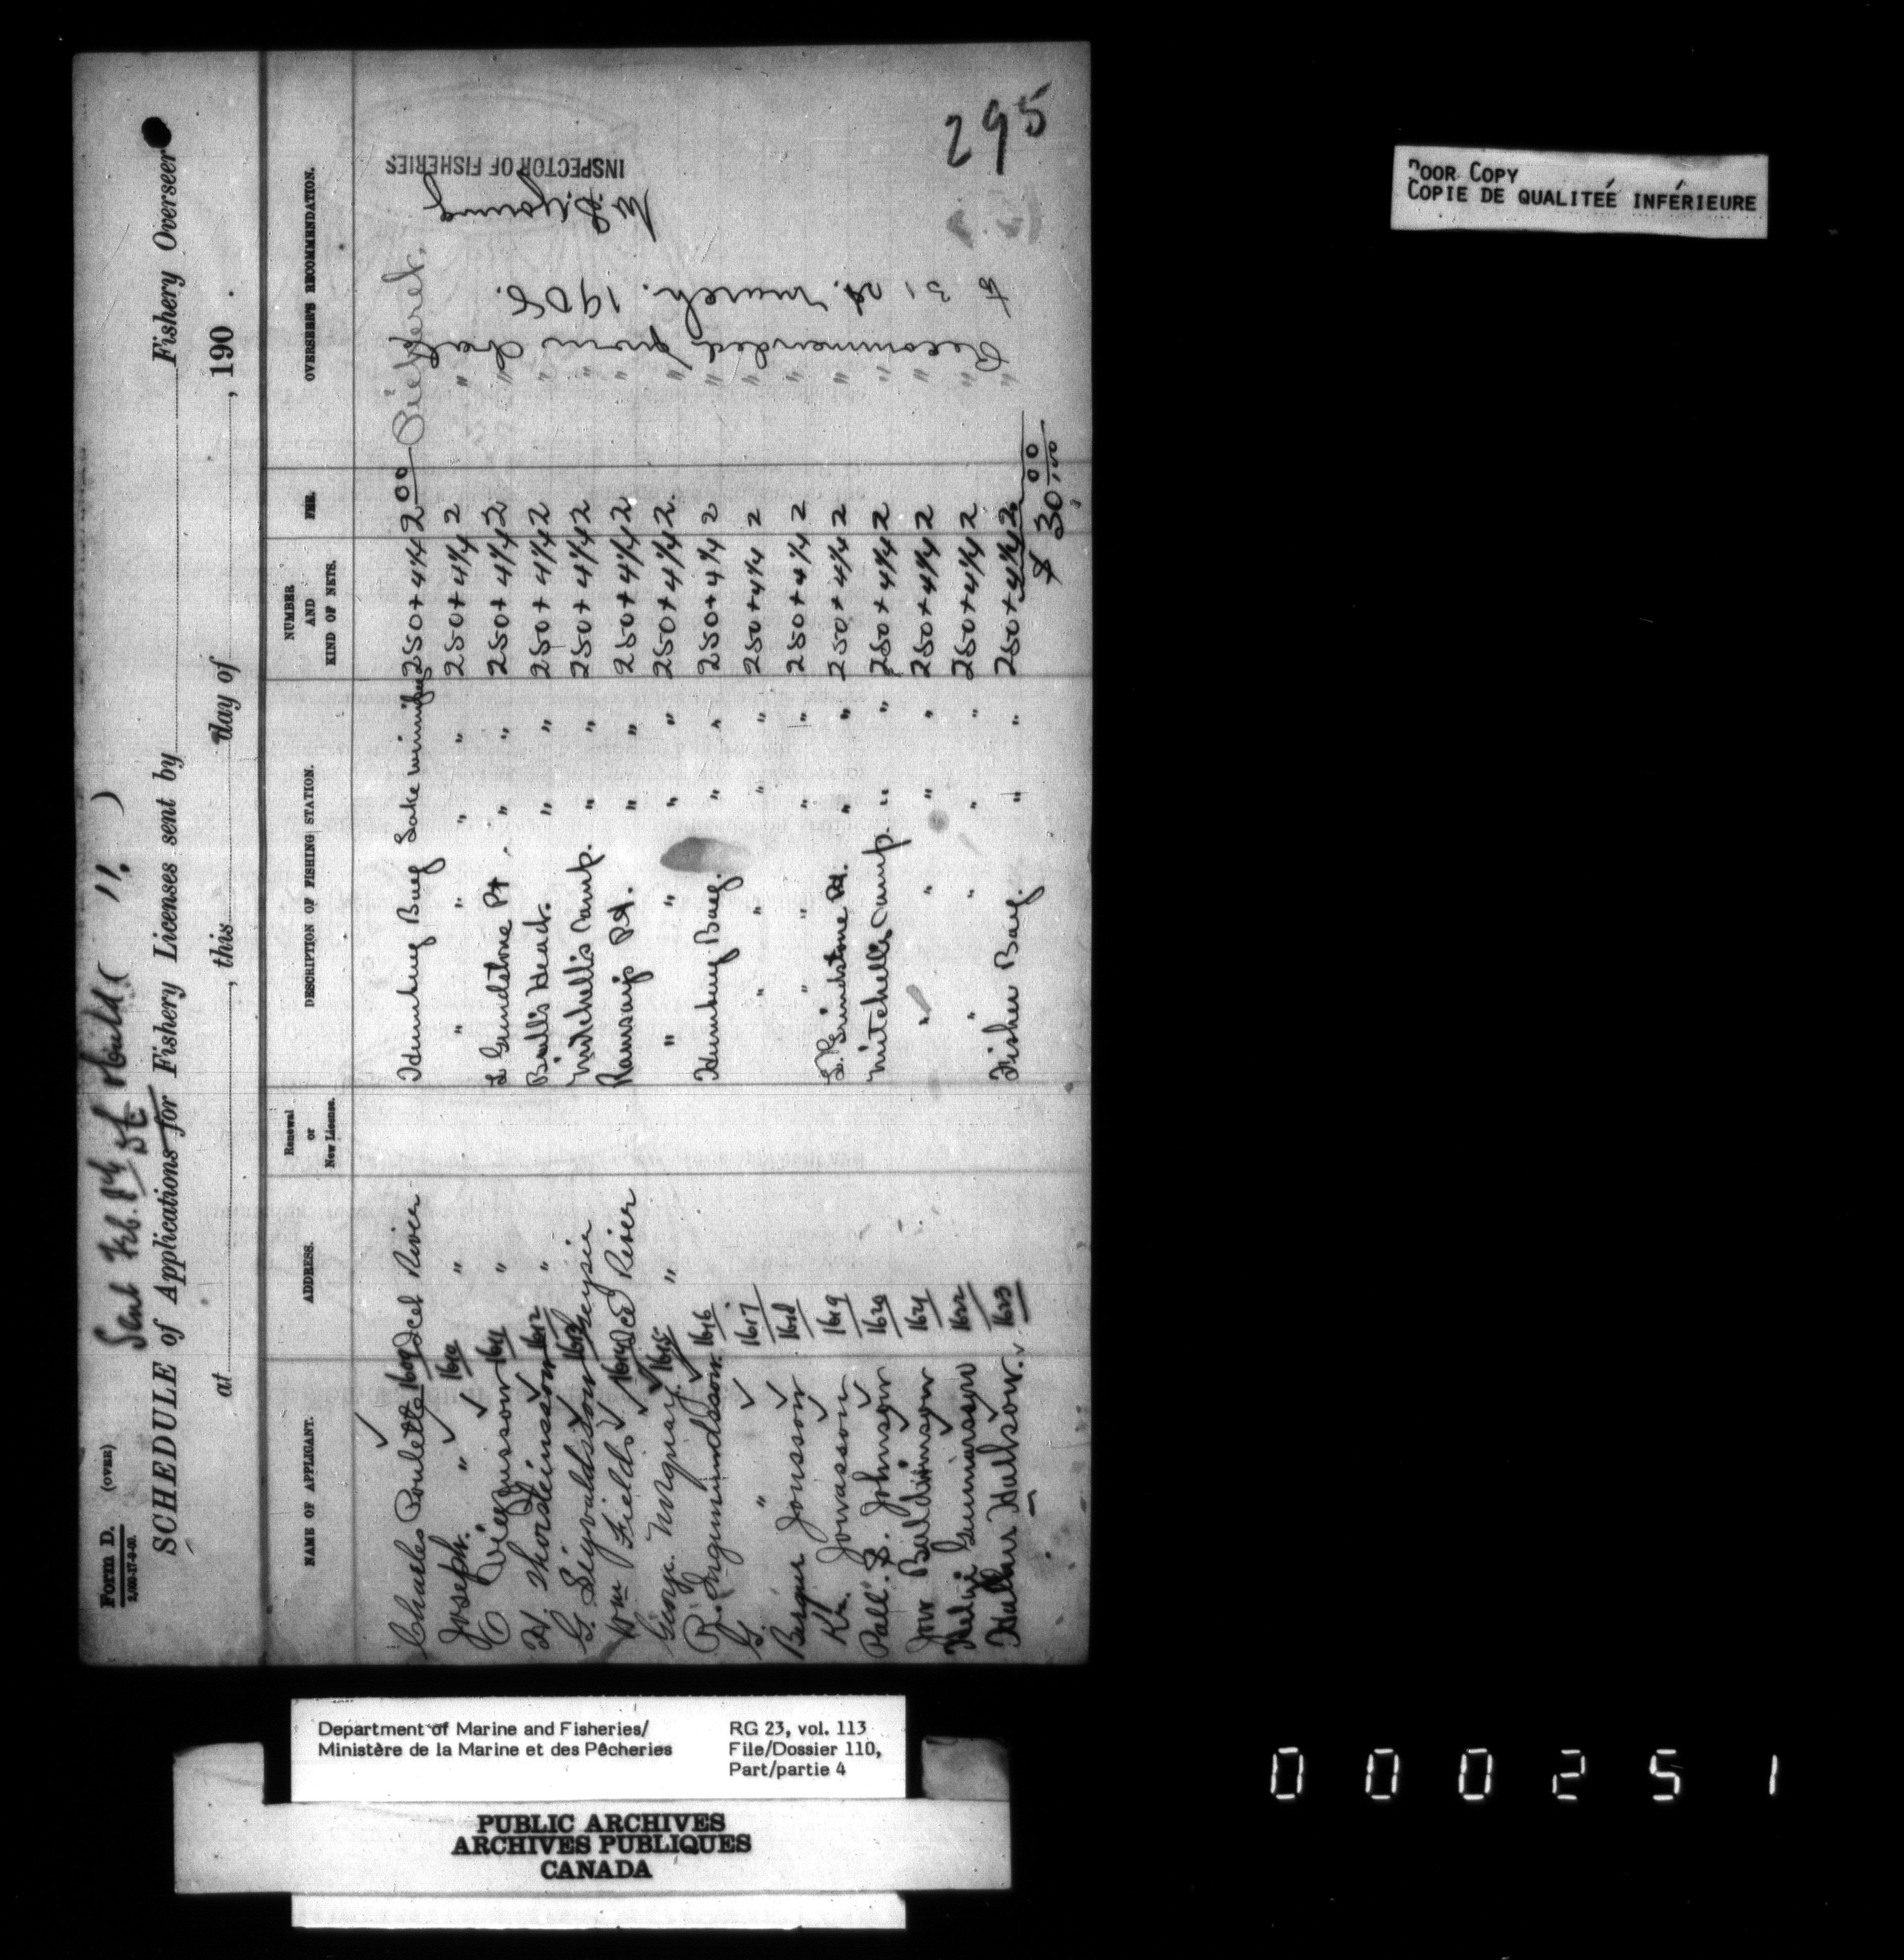 Form D. (OVER)
Sent Feb. 14
SCHEDULE of Applications for Fishery Licenses sent by Fishery Overseer
at , this day of , 190 .
NAME OF APPLICANT. ADDRESS. Renewal or New License. DESCRIPTION OF FISHING STATION. NUMBER AND KIND OF NETS. FEE. OVERSEER'S RECOMMENDATION.
Charles Poulette 1609 Icel River Humbug Bay Lake Winnipeg 250 + 4 1/4 2 00 Pickerel.
Joseph. " 1610 " " " " " 250 + 4 1/4 2 "
1611 " L Grindstone Pt. " " 250 + 4 1/4 2 "
H. Thorsteinsson 1612 " Bull's Head. " " 250 + 4 1/4 2 "
G. Sigvaldsson 1613 Geysir Mitchell's Camp. " " 250 + 4 1/4 2 "
Wm Fields 1614 Icel River Ramsay's Pt. " " 250 + 4 1/4 2 "
George Monquay 1615 " " " " " 250 + 4 1/4 2 "
R. Ingimundsson. 1616 Humbug Bay. " " 250 + 4 1/4 2 "
G. " 1617 " " " " 250 + 4 1/4 2 "
Jonsson 1618 " " " " 250 + 4 1/4 2 "
Kr. Jonasson 1619 L. Grindstone Pt. " " 250 + 4 1/4 2 "
Pall S. Johnson 1620 Mitchell's Camp. " " 250 + 4 1/4 2 "
Jon Baldwinson 1621 " " " " 250 + 4 1/4 2 "
Helgi Gunnarsson 1622 " " " " 250 + 4 1/4 2 "
1623 Fisher Bay. " " 250 + 4 1/4 2 "
$ 30.00
Recommended from date
to 31st. March. 1908.
W. S. Young
INSPECTOR OF FISHERIES
295
POOR COPY
COPIE DE QUALITEÉ INFÉRIEURE
Department of Marine and Fisheries/
Ministère de la Marine et des Pêcheries
RG 23, vol. 113
File/Dossier 110,
Part/partie 4
PUBLIC ARCHIVES
ARCHIVES PUBLIQUES
CANADA
000251